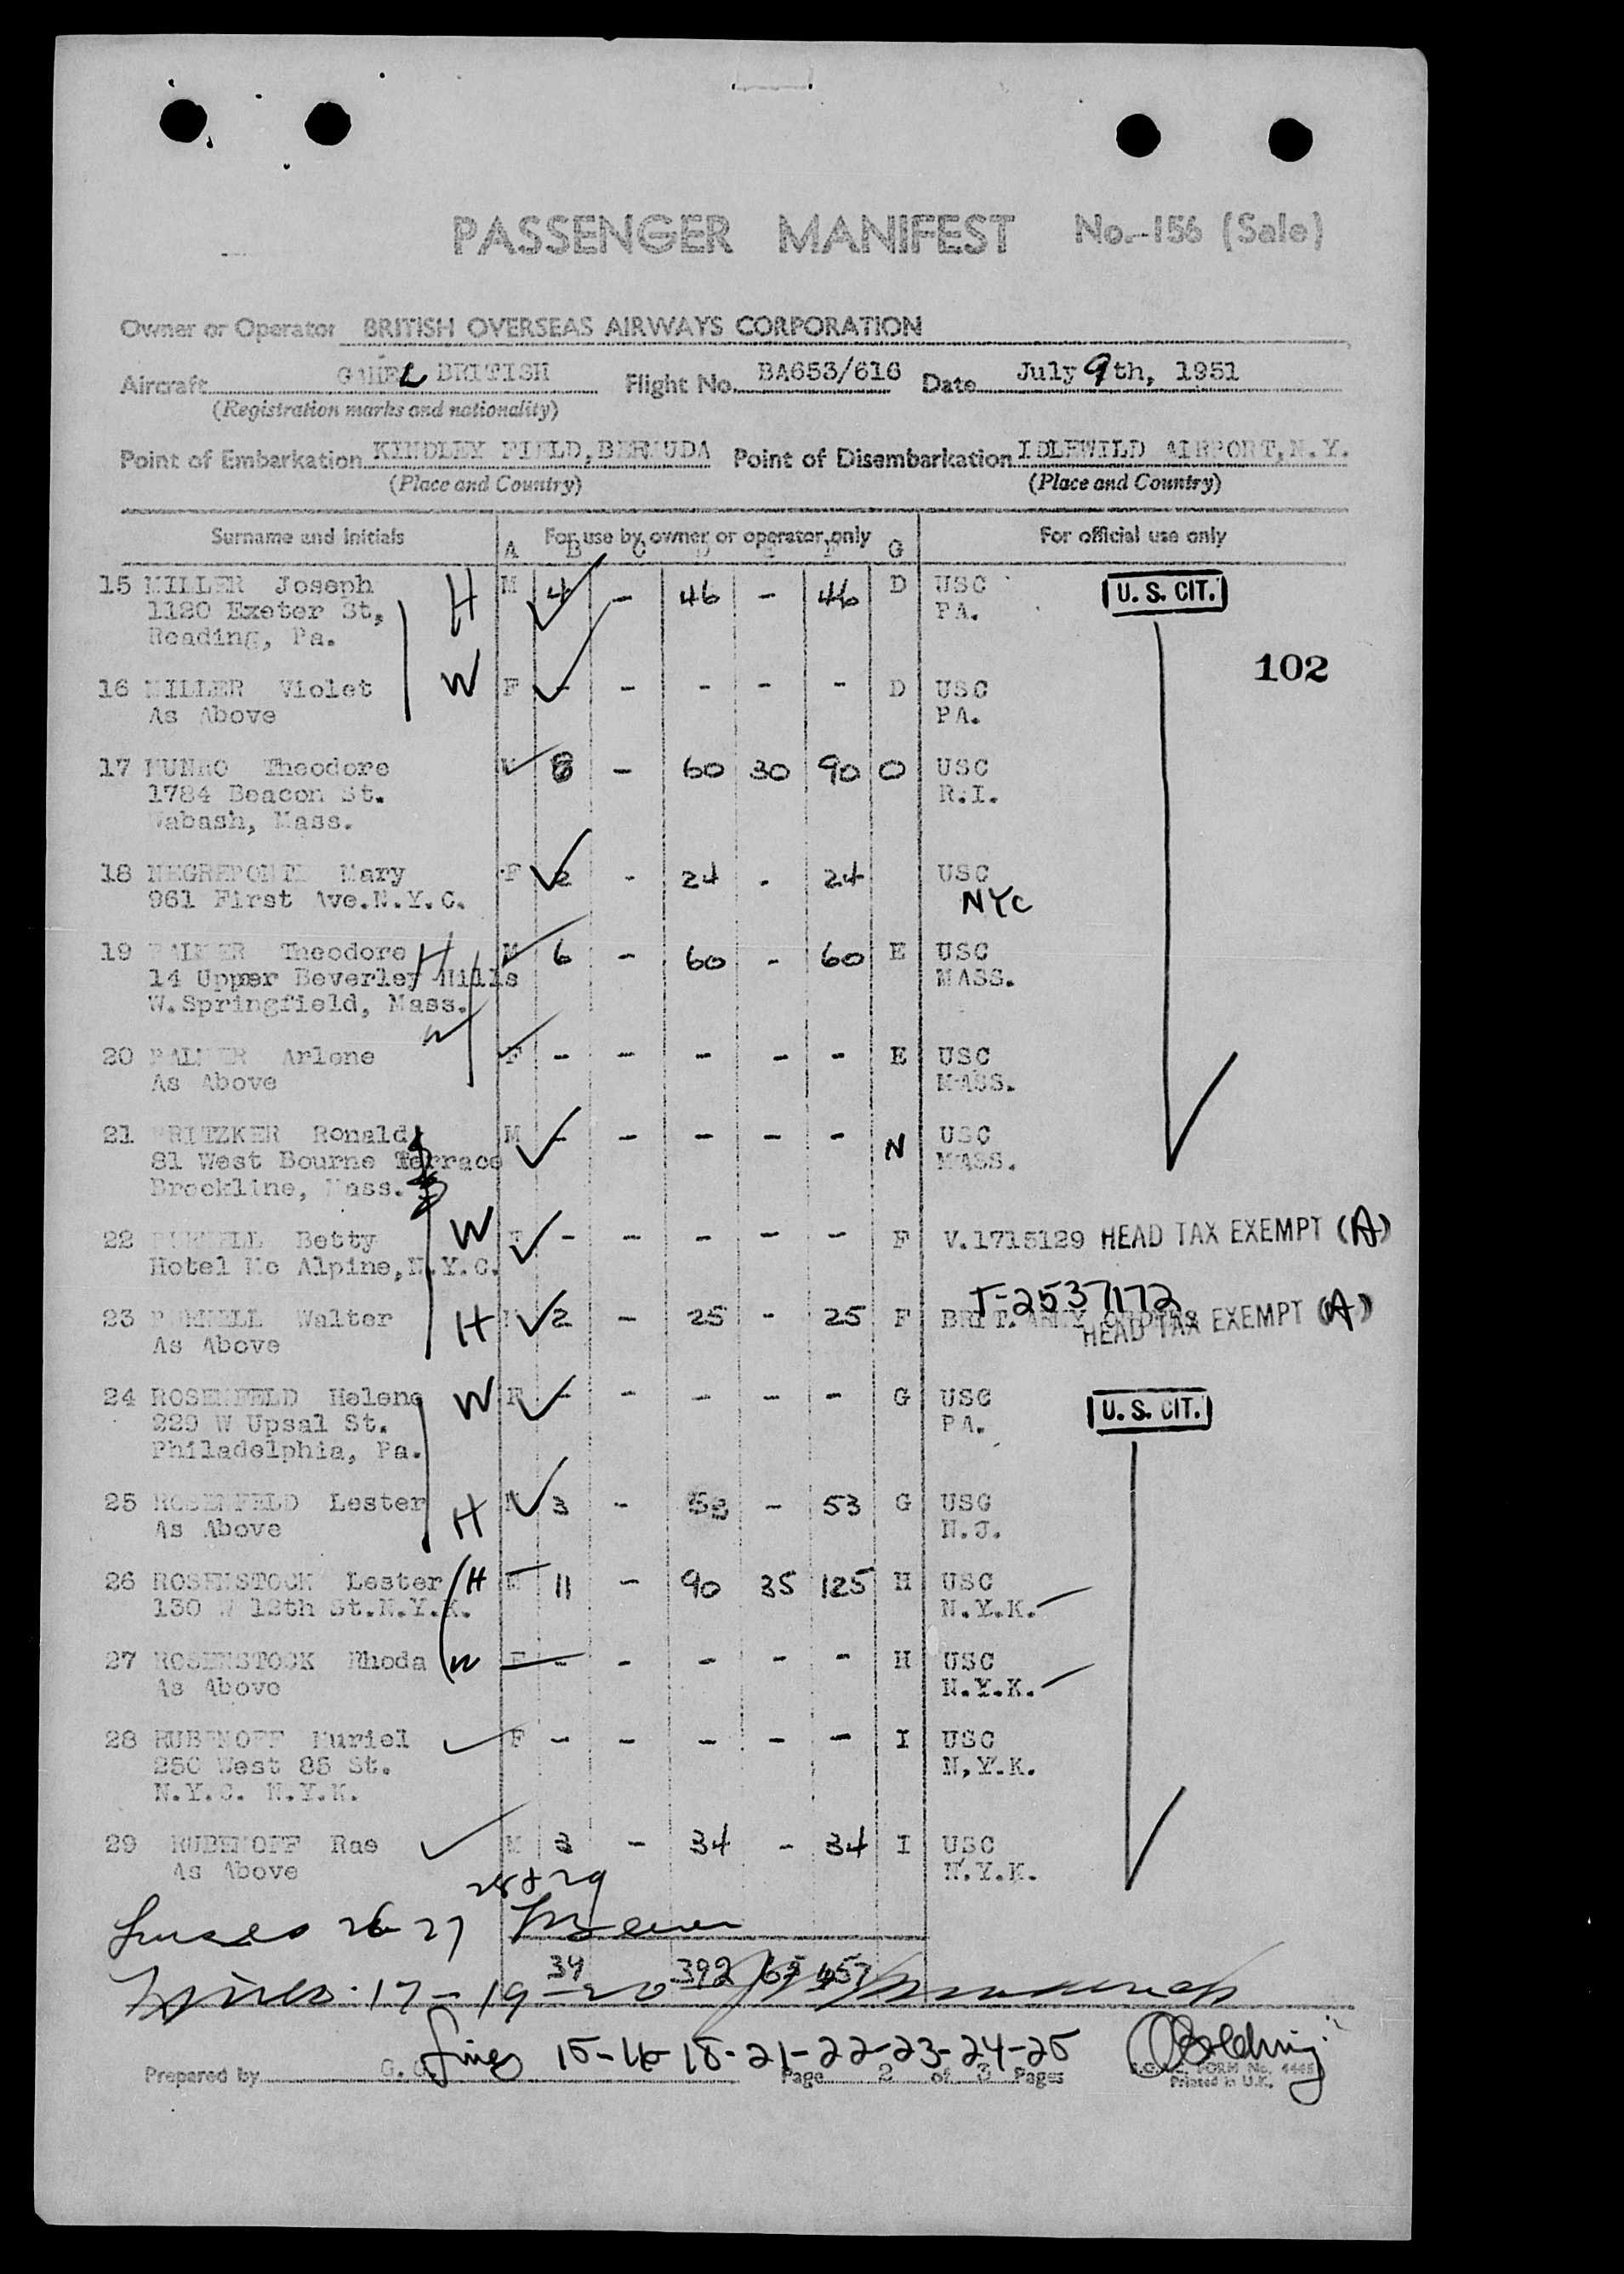 PASSENGER MANIFEST No.-156 (Sale)
Owner or Operator BRITISH OVERSEAS AIRWAYS CORPORATION
Aircraft L BRITISH Flight No. BA653/616 Date July 9th, 1951
(Registration marks and nationality)
Point of Embarkation KINDLEY FIELD, BERMUDA Point of Disembarkation IDLEWILD AIRPORT, N.Y.
(Place and Country) (Place and Country)
Surname and initials For use by owner or operator only For official use only
A B C D E F G
15 MILLER Joseph H M 4 - 46 - 46 D USC U. S. CIT.
1120 Exeter St, PA.
Reading, Pa.
102
16 MILLER Violet W F - - - - - D USC
As Above PA.
17 MUNRO Theodore M 8 - 60 30 90 O USC
1784 Beacon St. R.I.
Wabash, Mass.
18 NEGREPONTE Mary F 2 - 24 - 24 USC
961 First Ave.N.Y.C. NYC
19 PALMER Theodore H M 6 - 60 - 60 E USC
14 Upper Beverley Hills MASS.
W.Springfield, Mass.
W
20 PALMER Arlene F - - - - - E USC
As Above MASS.
21 PRITZKER Ronald M - - - - - N USC
81 West Bourne Terrace MASS.
Brockline, Mass.
22 Betty W F - - - - - F V.1715129 HEAD TAX EXEMPT (A)
Hotel Mc Alpine,N.Y.C.
T-2537172
23 Walter H M 2 - 25 - 25 F BRIT. ARMY ORDERS HEAD TAX EXEMPT (A)
As Above
24 ROSENFELD Helene W F - - - - - G USC U. S. CIT.
229 W Upsal St. PA.
Philadelphia, Pa.
25 ROSENFELD Lester H M 3 - 53 - 53 G USC
As Above N.J.
26 ROSENSTOCK Lester H M 11 - 90 35 125 H USC
130 W 12th St.N.Y.K. N.Y.K.
27 ROSENSTOCK Rhoda W F - - - - - H USC
As Above N.Y.K.
28 RUBENOFF Muriel F - - - - - I USC
250 West 85 St. N.Y.K.
N.Y.C. N.Y.K.
29 RUBENOFF Rae M 3 - 34 - 34 I USC
As Above N.Y.K.
28 & 29
26-27
39 392 65 457
17-19-20
15-16-18-21-22-23-24-25
Prepared by G. Page 2 of 3 Pages FORM No. 4445
Printed in U.K.